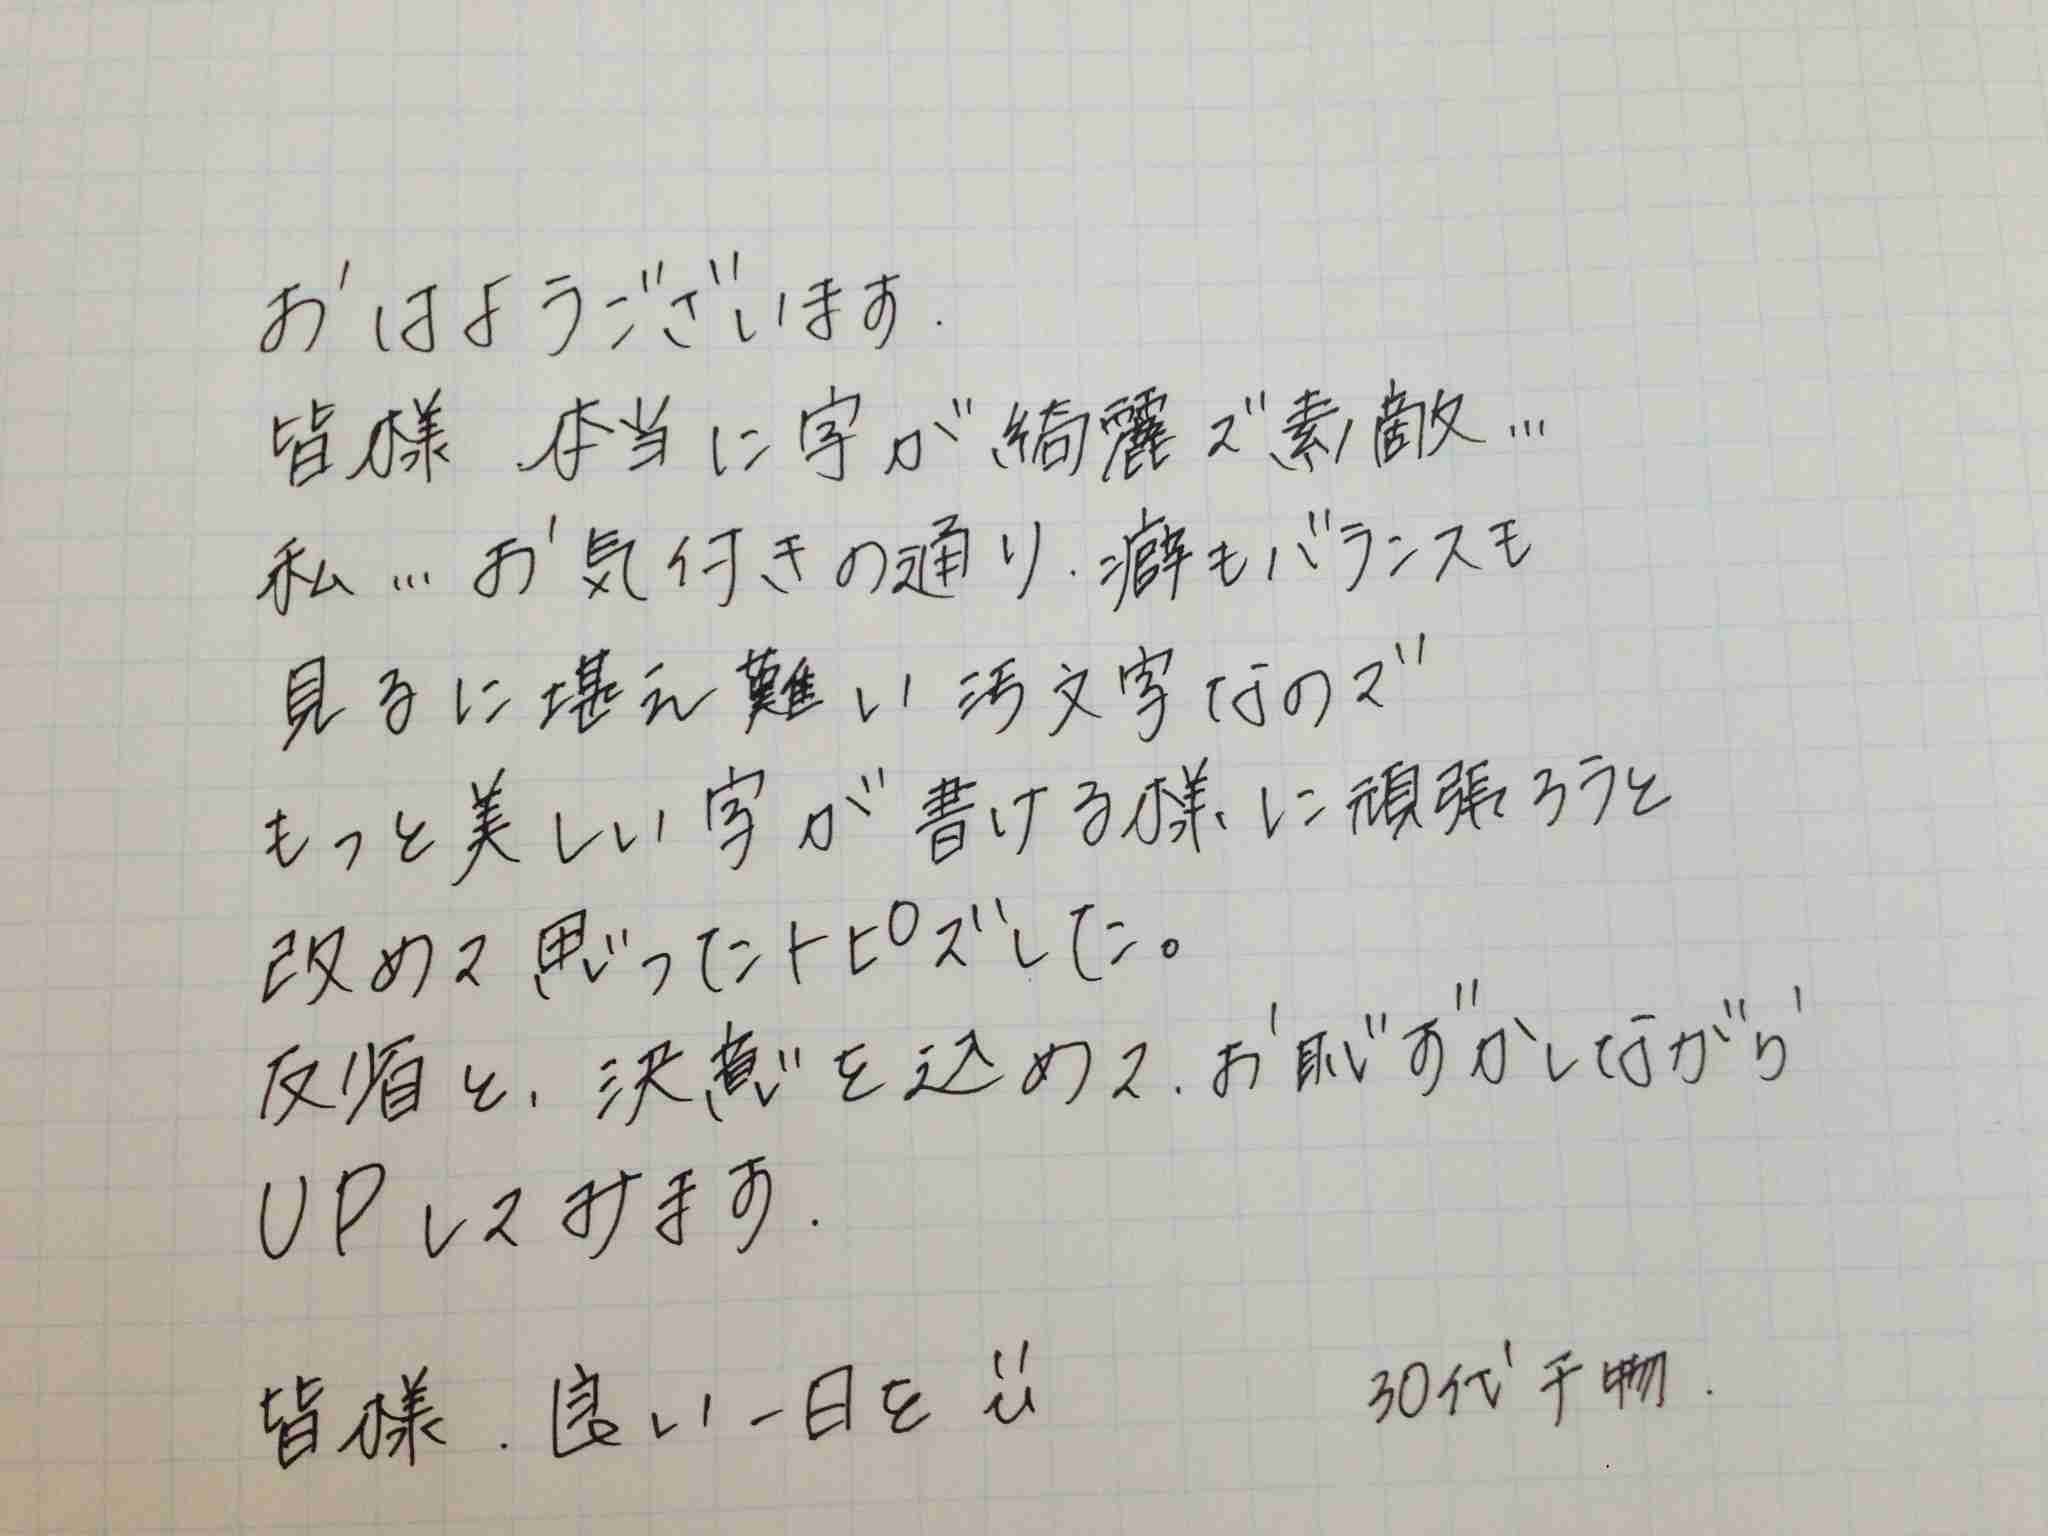 おはようございます.
皆様 本当に字が綺麗で素敵…
私…お気付きの通り.癖もバランスも
見るに堪え難い汚文字なので
もっと美しい字が書ける様に頑張ろうと
改めて思ったトピでした。
反省と、決意を込めて.お恥ずかしながら
UPしてみます.
皆様.良い一日を
30代干物.